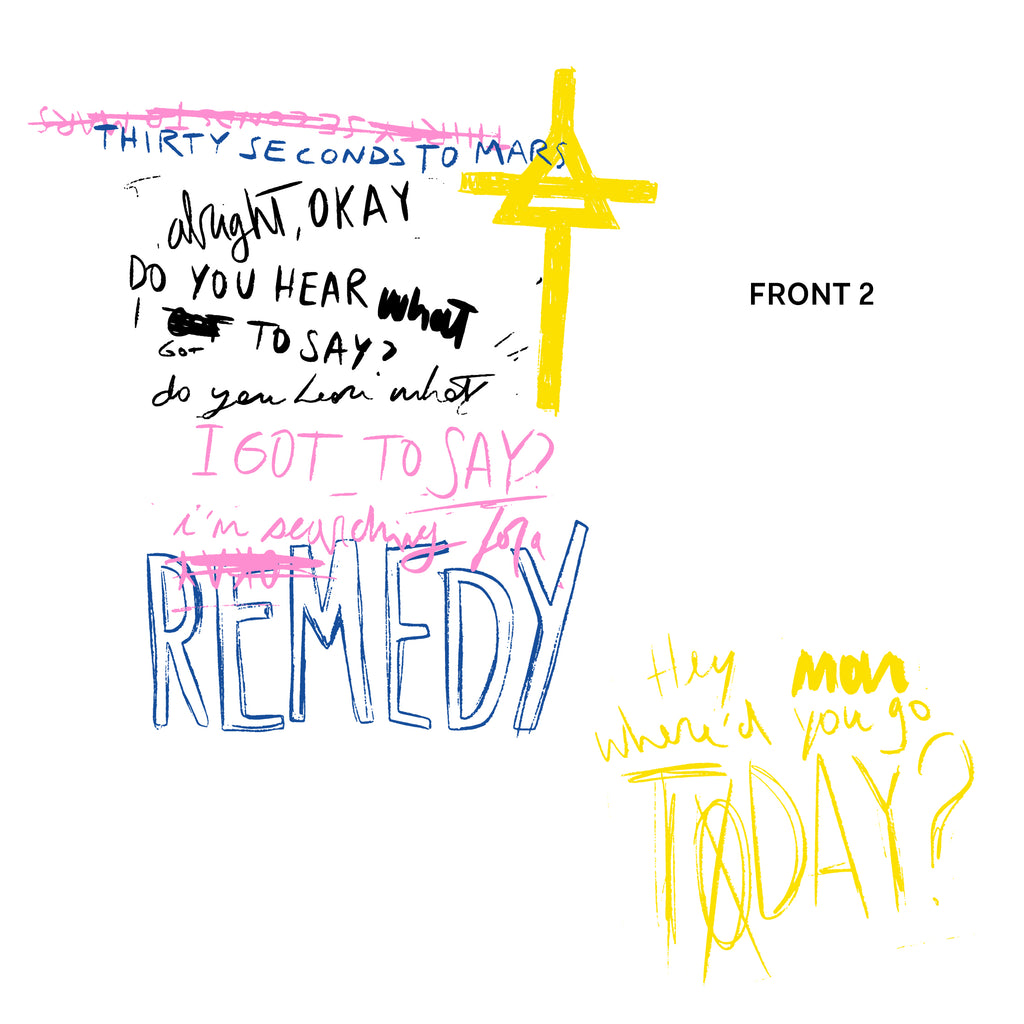 THIRTY SECONDS TO MARS
THIRTY SECONDS TO MARS
alright, OKAY
DO YOU HEAR what
I GOT TO SAY?
GOT
do you hear what
I GOT TO SAY?
i'm searching for a
REMEDY
FRONT 2
Hey man
where'd you go
TODAY?